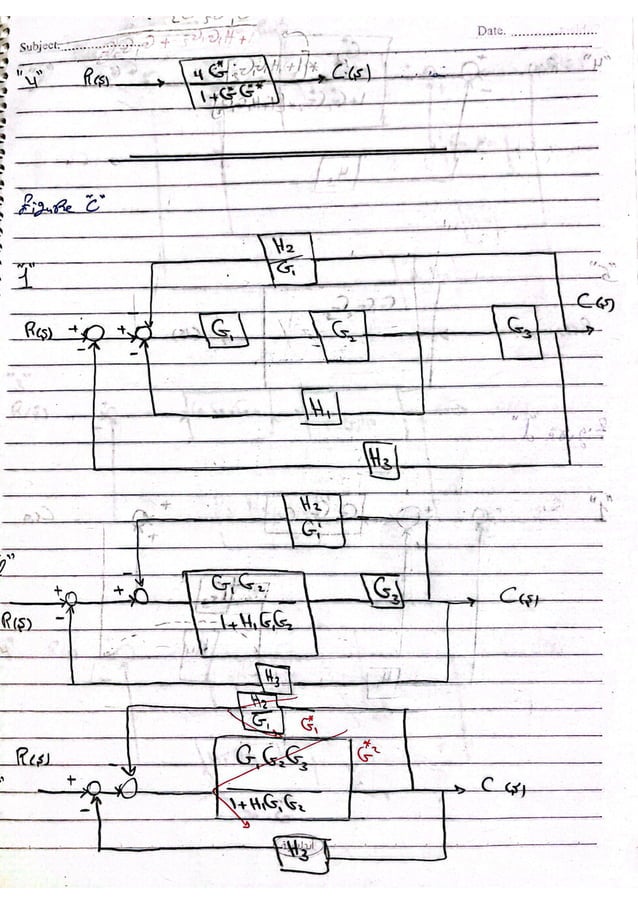 Subject:........................ Date. ........................
"4" R(s) 4 G* / 1+G*G** C(s)
Figure "C"
"1"
H2 / G1
C(s)
R(s) + - + - - G1 G2 G3
H1
H3
H2 / G1
R(s) + - + - G1G2 / 1+H1G1G2 G3 C(s)
H3
H2 / G1 G*1
R(s) G1G2G3 / 1+H1G1G2 G*2
+ - - C(s)
H3